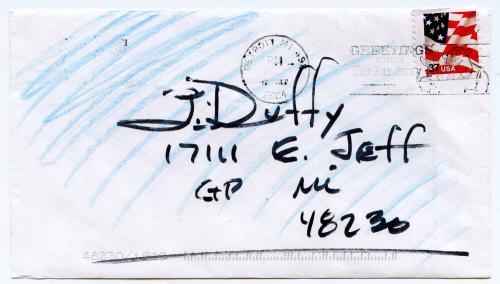 DETROIT MI 482
PM
2004
GREETINGS
37 USA
J. Duffy
17111 E. Jeff
GP Mi
48230